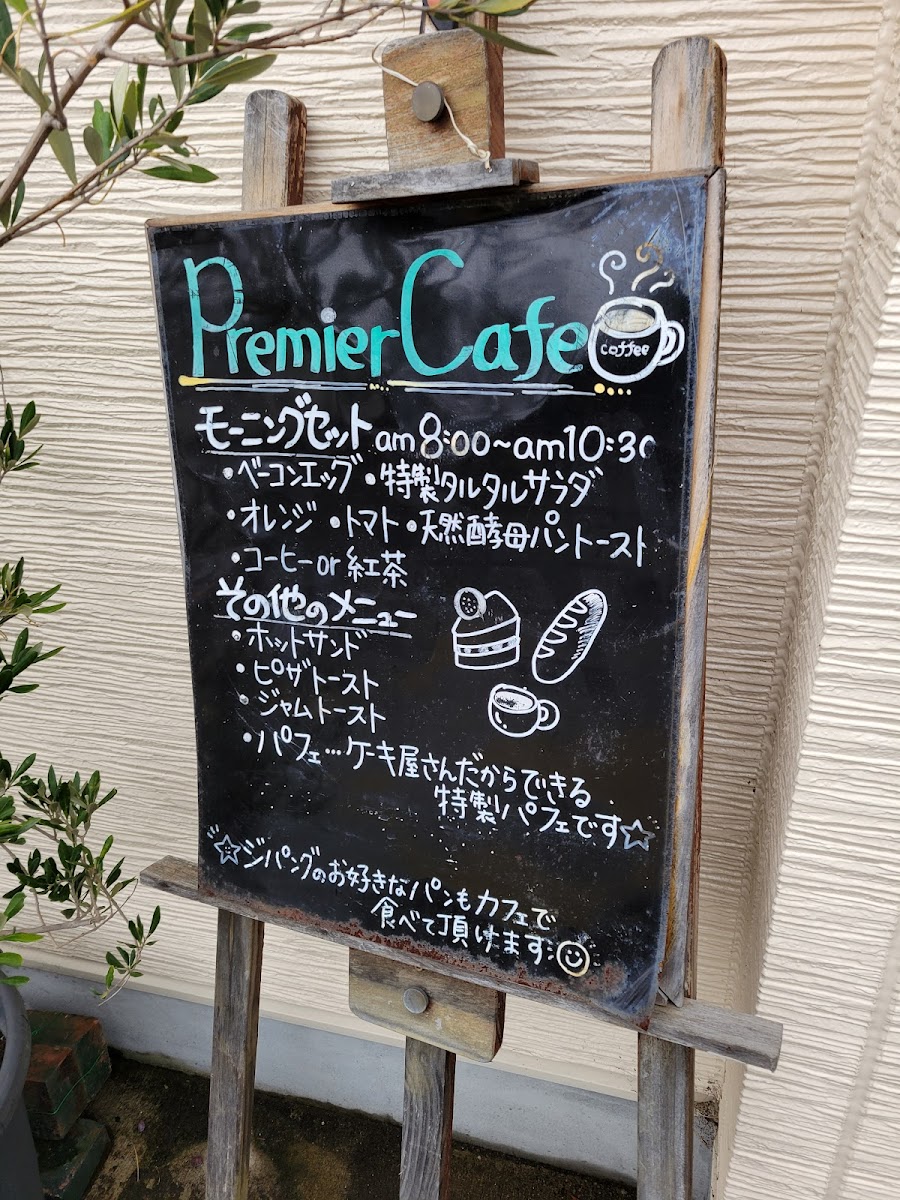 Premier Cafe
coffee
モーニングセット am8:00~am10:30
・ベーコンエッグ ・特製タルタルサラダ
・オレンジ ・トマト ・天然酵母パントースト
・コーヒーor 紅茶
その他のメニュー
・ホットサンド
・ピザトースト
・ジャムトースト
・パフェ…ケーキ屋さんだからできる
特製パフェです☆
☆ジパングのお好きなパンもカフェで
食べて頂けます☺